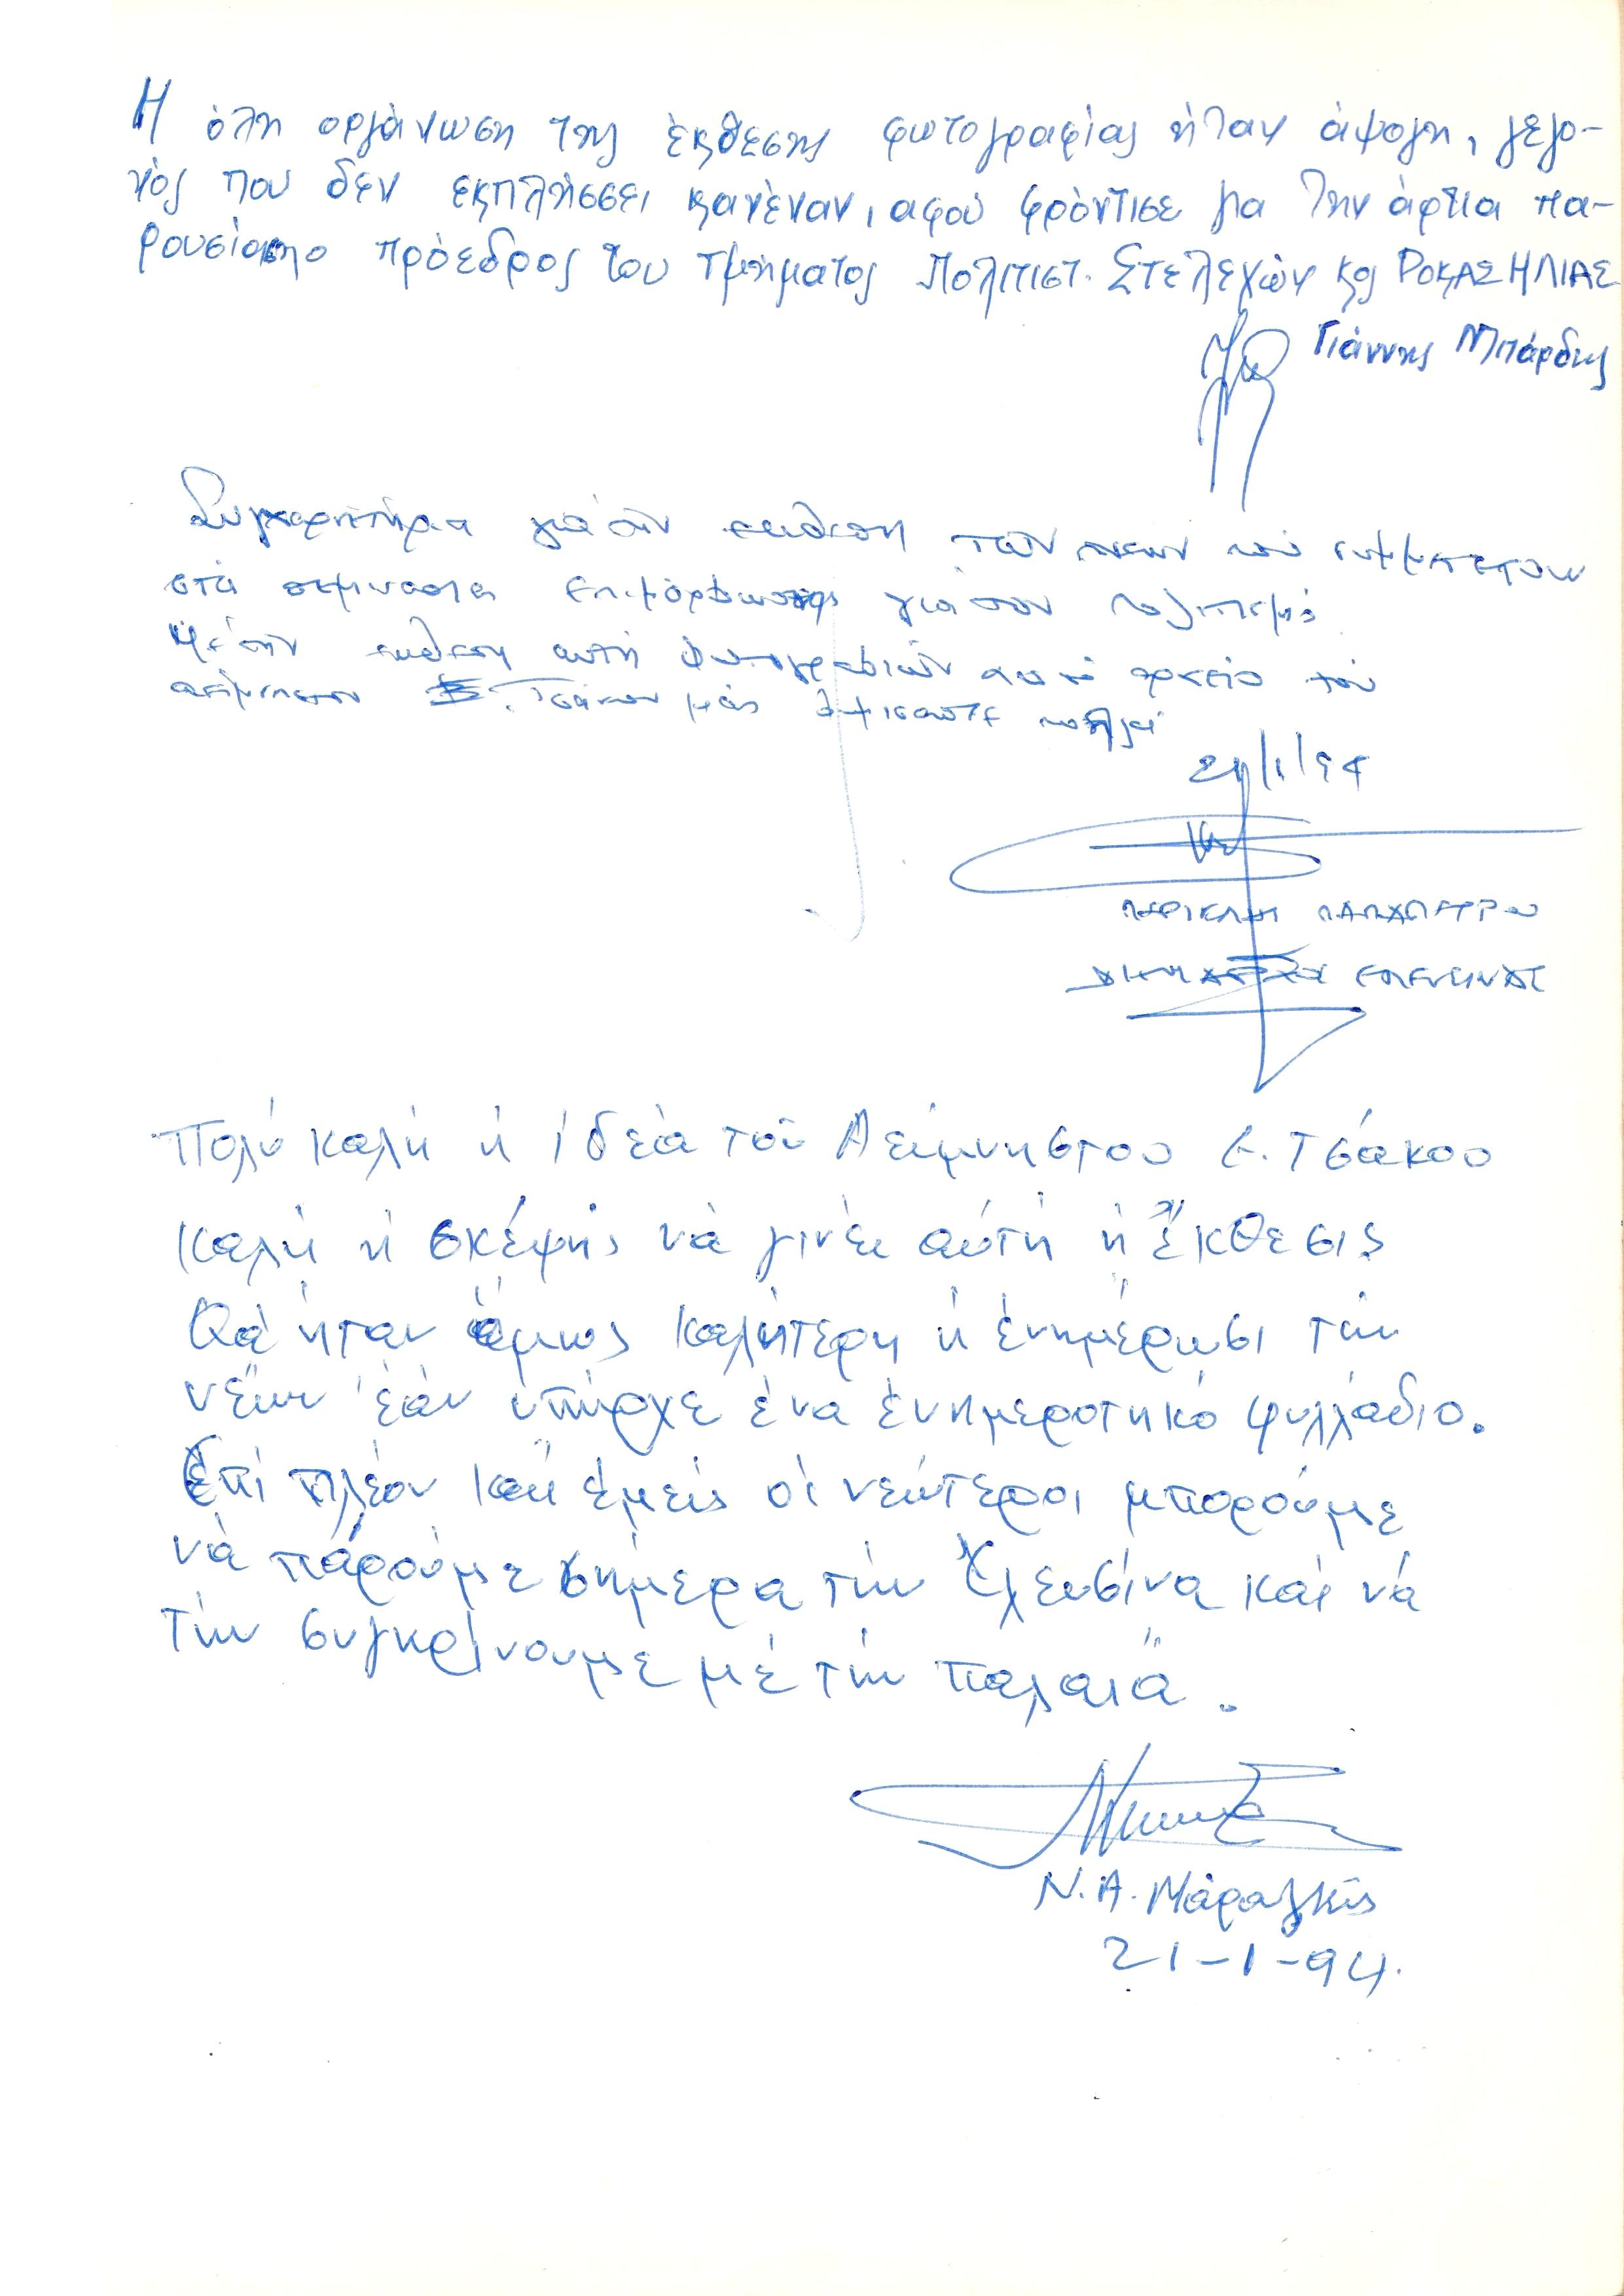 Η όλη οργάνωση της έκθεσης φωτογραφίας ήταν άψογη, γεγο-
νός που δεν εκπλήσσει κανέναν, αφού φρόντισε για την άρτια πα-
ρουσίαση ο πρόεδρος του τμήματος Πολιτιστ. Στελεχών κος ΡΟΚΑΣ ΗΛΙΑΣ
Γιάννης Μπάρδης
Συγχαρητήρια γιά τήν έκθεση τών νέων πού συμμετέχουν
στά σεμινάρια επιμόρφωσης γιά τον πολιτισμό
Μέ τήν έκθεση αυτή φωτογραφιών από τό αρχείο τού
αείμνηστου Τσάκου μάς θυμίσατε πολλά
21/1/94
ΠΕΡΙΚΛΗΣ ΠΑΠΑΠΕΤΡΟΥ
ΔΗΜΑΡΧΟΣ ΕΛΕΥΣΙΝΑΣ
Πολύ καλή ή ίδεά τού Αείμνηστου Ε. Τσάκου
Καλή ή σκέψης νά γινει αύτή ή Έκθεσις
Θά ήταν όμως καλήτερη ή ένημέρωσι τών
νέων έάν ύπήρχε ένα ένημεροτηκό φυλλάδιο.
Επί πλέον καί έμείς οί νεώτεροι μπορούμε
νά πάρούμε σήμερα τήν Έλευσίνα καί νά
Τήν συγκρίνουμε μέ τήν παλαιά.
Ν. Α. Μάραγκός
21-1-94.